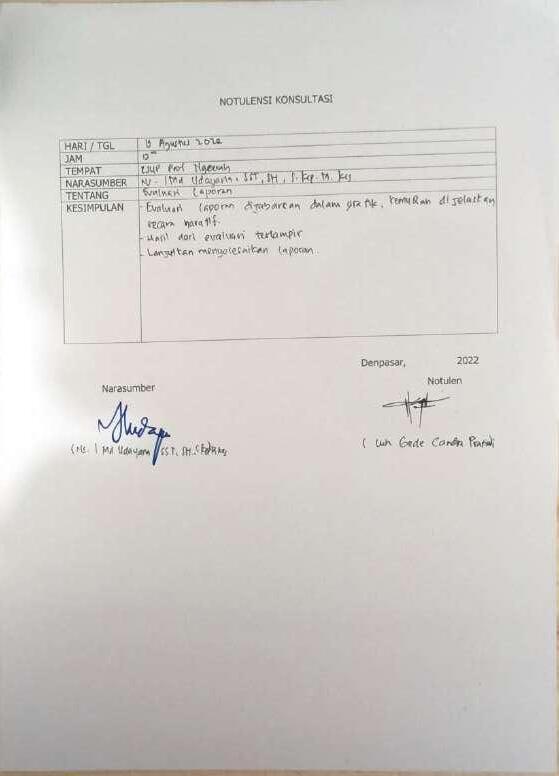 NOTULENSI KONSULTASI
HARI / TGL Agustus 2022
JAM
TEMPAT RSUP Prof Ngoerah
NARASUMBER Ns. I Md Udayana, SST, SH, S.Kep. M. Kes
TENTANG Evaluasi Laporan
KESIMPULAN - Evaluasi laporan dijabarkan dalam grafik, kemudian dijelaskan
secara naratif.
- Hasil dari evaluasi terlampir
- Lanjutkan menyelesaikan laporan.
Denpasar, 2022
Narasumber Notulen
(Ns. I Md Udayana SST, SH, ( Luh Gede Candra